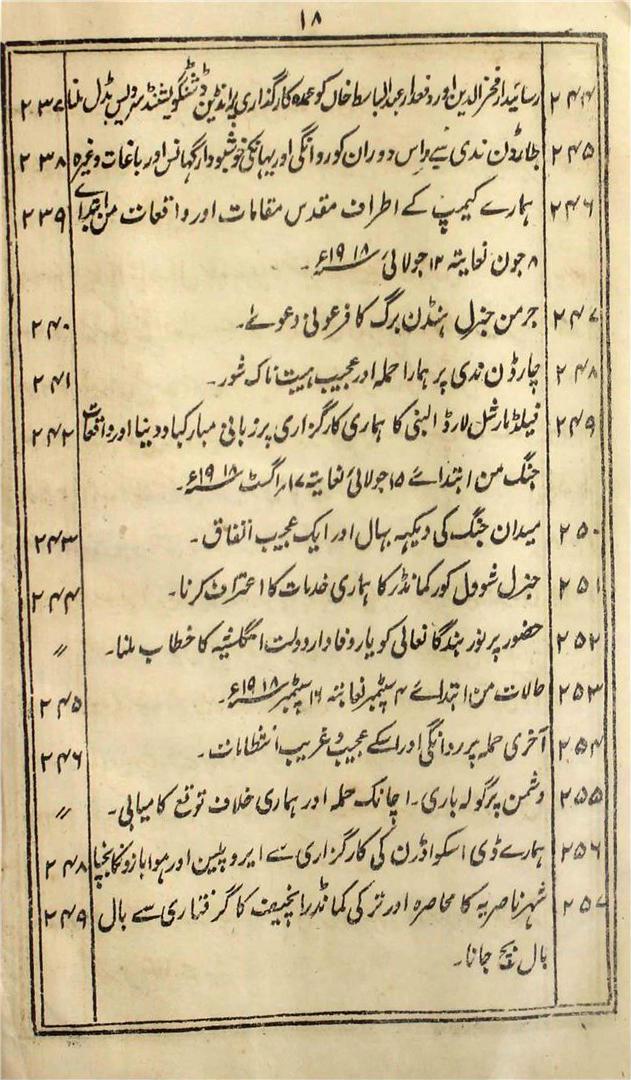 ۱۸
۲۴۴ رسائیدار فخر الدین اور دفعدار عبد الباسط خاں کو عمدہ کارگذاری پر انڈین ڈسٹنگویشڈ سرویس مڈل ملنا ۲۳۷
۲۴۵ جارڈن ندی سے واس دوران کو روانگی اور یہانکی خوشبودار گہانس اور باغات وغیرہ ۲۳۸
۲۴۶ ہمارے کیمپ کے اطراف مقدس مقامات اور واقعات من ابتدائے ۲۳۹
۸ جون نعایتہ ۱۲ جولائی ۱۹۱۸ء۔
۲۴۷ جرمن جنرل ہنڈن برگ کا فرعونی دعوےٰ۔ ۲۴۰
۲۴۸ چارڈن ندی پر ہمارا حملہ اور عجیب ہیبت ناک شور۔ ۲۴۱
۲۴۹ فیلڈ مارشل لارڈ البنی کا ہماری کارگزاری پر زبانی مبارکباد دینا اور واقعات ۲۴۲
جنگ من ابتدائے ۱۵ جولائی نعایتہ ۱۷ اگسٹ ۱۹۱۸ء۔
۲۵۰ میدان جنگ کی دیکہہ بہال اور ایک عجیب اتفاق۔ ۲۴۳
۲۵۱ جنرل شوول کور کمانڈر کا ہماری خدمات کا اعتراف کرنا۔ ۲۴۴
۲۵۲ حضور پر نور بندگانعالی کو یار وفادار دولت انگلشیہ کا خطاب ملنا۔ 〃
۲۵۳ حالات من ابتدائے ۴ سپٹمبر نعایتہ ۱۶ سپٹمبر ۱۹۱۸ء۔ ۲۴۵
۲۵۴ آخری حملہ پر روانگی اور اسکے عجیب و غریب انتظامات۔ ۲۴۶
۲۵۵ دشمن پر گولہ باری۔ اچانک حملہ اور ہماری خلاف توقع کامیابی۔ 〃
۲۵۶ ہمارے ڈی اسکواڈرن کی کارگزاری سے ایروپلین اور ہوابازونکا بچنا ۲۴۸
۲۵۷ شہر ناصریہ کا محاصرہ اور ترکی کمانڈر انچیف کا گرفتاری سے بال ۲۴۹
بال بچ جانا۔